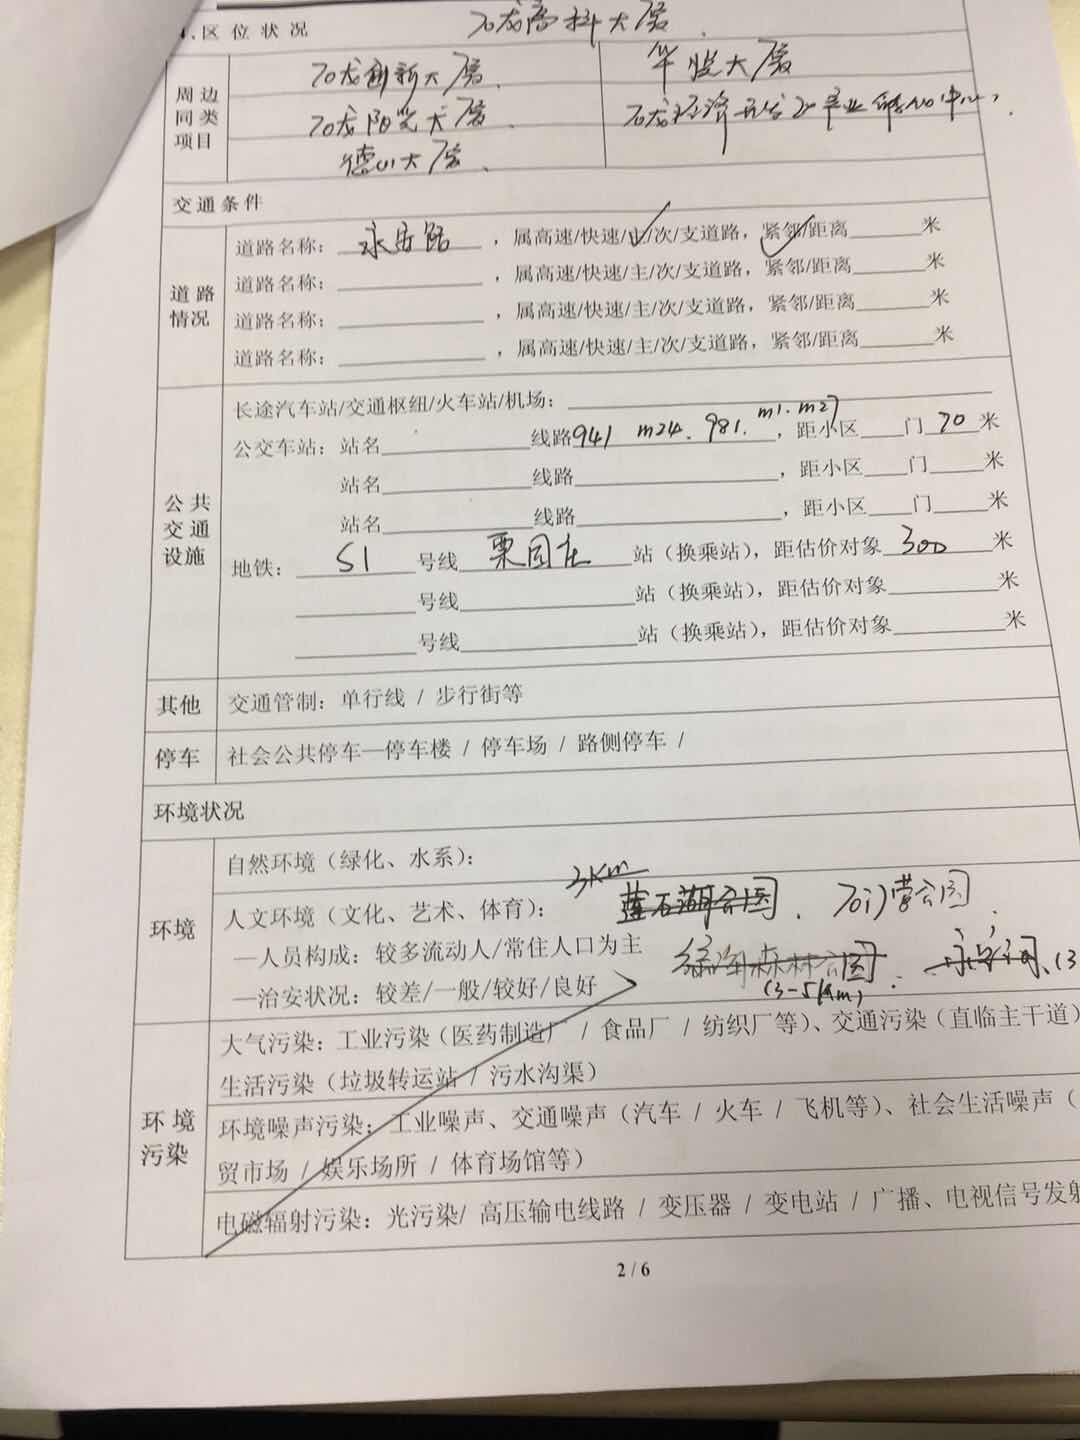 1.区位状况 石龙高科大厦
周边同类项目
石龙创新大厦、 华悦大厦
石龙阳光大厦、 石龙经济开发区
德山大厦、
交通条件
道路情况
道路名称：永安路，属高速/快速/主/次/支道路，紧邻/距离____米
道路名称：____，属高速/快速/主/次/支道路，紧邻/距离____米
道路名称：____，属高速/快速/主/次/支道路，紧邻/距离____米
道路名称：____，属高速/快速/主/次/支道路，紧邻/距离____米
公共交通设施
长途汽车站/交通枢纽/火车站/机场：____
公交车站：站名____线路941 m24. 981. m1. m27，距小区____门70米
站名____线路____，距小区____门____米
站名____线路____，距小区____门____米
地铁：S1号线栗园庄站（换乘站），距估价对象300米
____号线____站（换乘站），距估价对象____米
____号线____站（换乘站），距估价对象____米
其他 交通管制：单行线 / 步行街等
停车 社会公共停车—停车楼 / 停车场 / 路侧停车 /
环境状况
环境
自然环境（绿化、水系）：
3Km
人文环境（文化、艺术、体育）： 莲石湖公园、石门营公园
—人员构成：较多流动人/常住人口为主 森林公园、
(3-5Km)
—治安状况：较差/一般/较好/良好
环境污染
大气污染：工业污染（医药制造厂 / 食品厂 / 纺织厂等）、交通污染（直临主干道）
生活污染（垃圾转运站 / 污水沟渠）
环境噪声污染：工业噪声、交通噪声（汽车 / 火车 / 飞机等）、社会生活噪声（
贸市场 / 娱乐场所 / 体育场馆等）
电磁辐射污染：光污染/ 高压输电线路 / 变压器 / 变电站 / 广播、电视信号发射
2 / 6